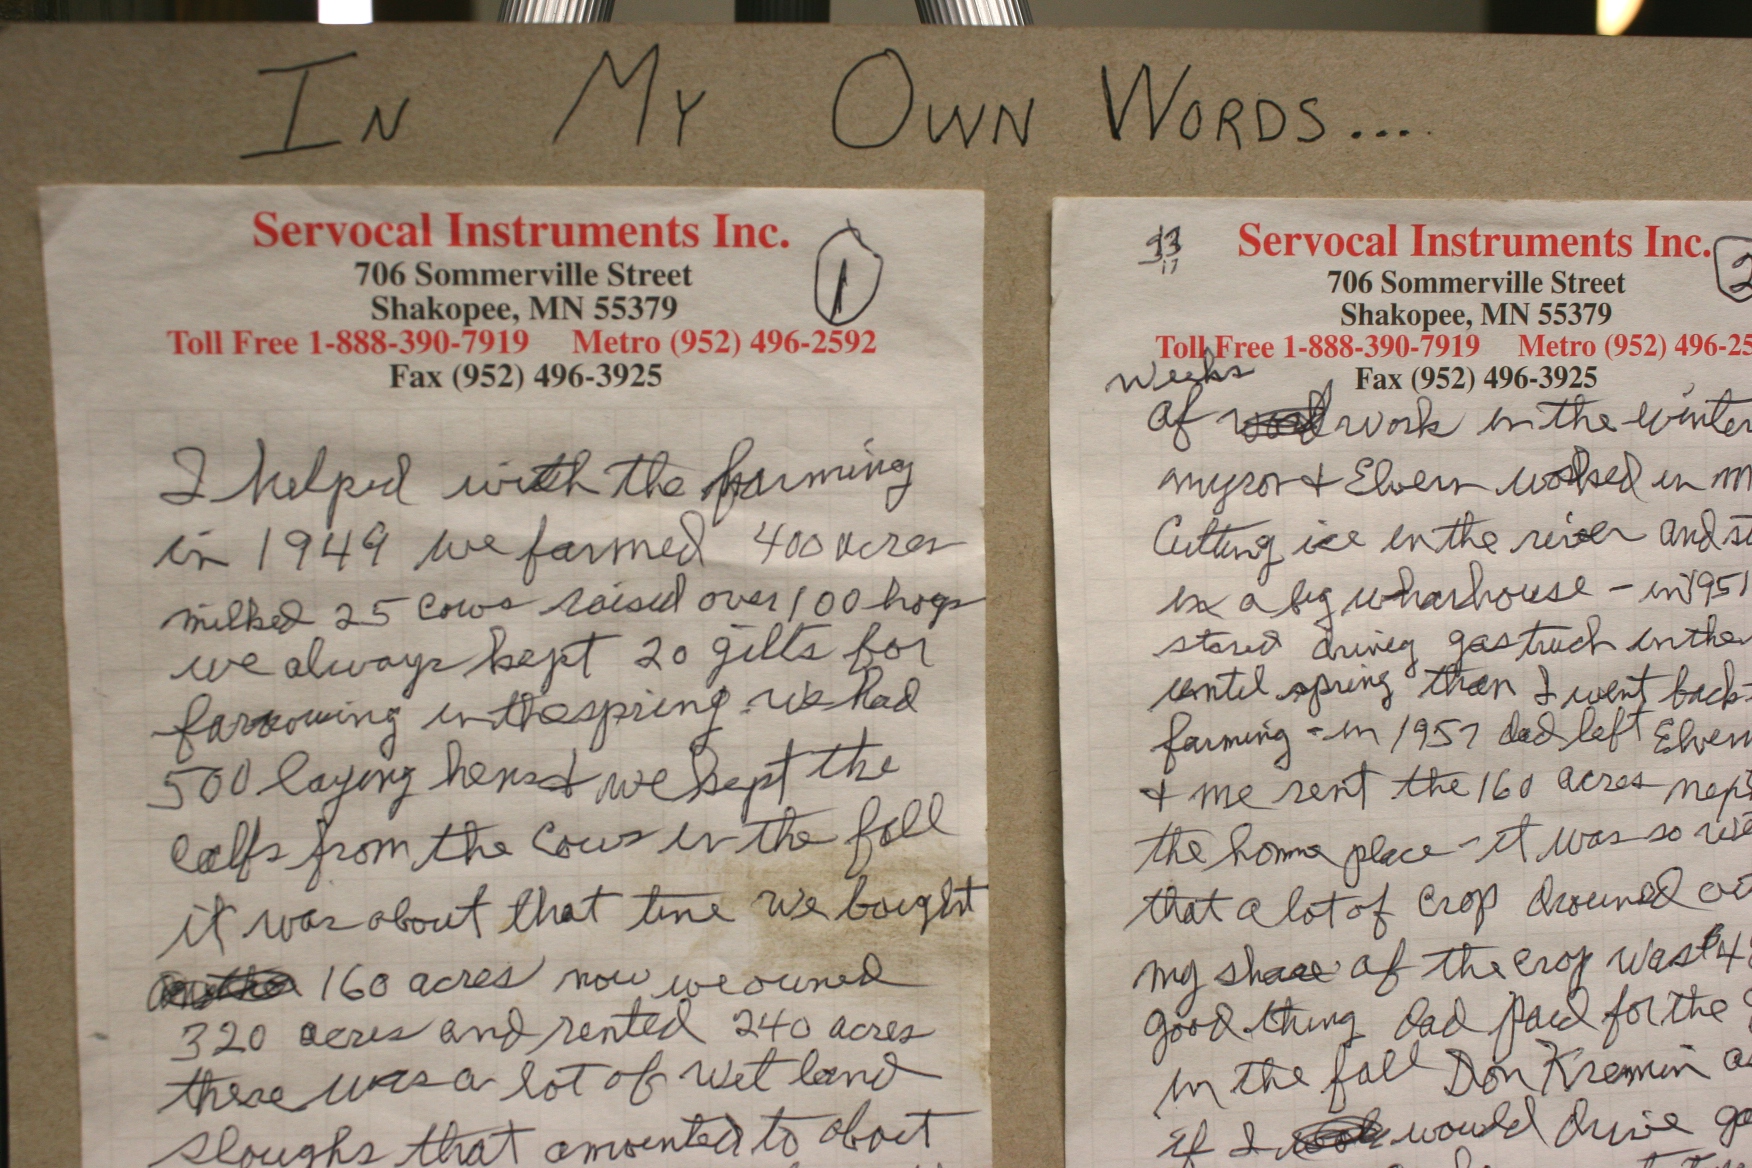 In My Own Words....
Servocal Instruments Inc.
706 Sommerville Street
Shakopee, MN 55379
Toll Free 1-888-390-7919 Metro (952) 496-2592
Fax (952) 496-3925
1
I helped with the farming
in 1949 we farmed 400 acres
milked 25 cows raised over 100 hogs
we always kept 20 gilts for
farrowing in the spring. we had
500 laying hens & we kept the
calfs from the cows in the fall
it was about that time we bought
160 acres now we owned
320 acres and rented 240 acres
there was a lot of wet land
sloughs that amounted to about
Servocal Instruments Inc.
2
706 Sommerville Street
Shakopee, MN 55379
Toll Free 1-888-390-7919 Metro (952) 496-25
Fax (952) 496-3925
weeks
of work in the winter
myron & Elvern worked in
Cutting ice in the river and st
in a big wharhouse - in 1951
stared driving gas truck in the
until spring than I went back
farming - in 1957 dad left Elvern
& me rent the 160 acres
the home place - it was so
that a lot of crop drouned
my share of the crop was $48
good thing dad paid for the
in the fall Don Kremin as
if I would drive ga